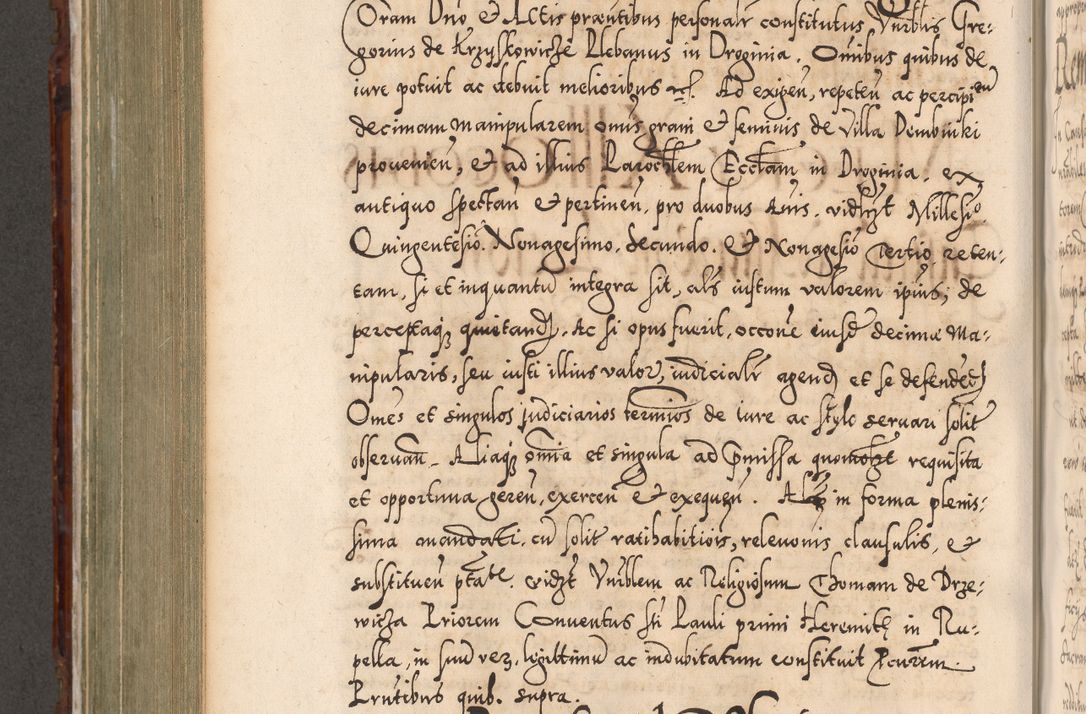 Coram Dno et Actis praesentibus personalr constitutus Vnrblis Gre-
gorius de Krzyskowicze Plebanus in Droginia. Omibus quibus de
iure potuit ac debuit melioribus etc. Ad exigen, repeten ac percipien
decimam manipularem omis grani et seminis de Villa Dembniki
prouenien, et ad illius Parochlem Ecctam in Droginia. ex
antiquo spectan et pertinen, pro duobus Anis. vidzt Millesio
Quingentesio. Nonagesimo. Secundo. et Nonagesio Tertio reten-
tam, si et inquantu integra sit, als iustum valorem ipsius, de
perceptaque quietand. Ac si opus fuerit, occone eiusd decimae Ma-
nipularis, seu iusti illius valor, iudicialr agend et se defendend
Omes et singulos judiciarios terminos de iure ac stylo seruari solit
obseruan. Aliaque omia et singula ad pmissa quomolzt requisita
et opportuna geren, exercen et exequen. Als in forma plenis-
sima mandati, cu solit ratihabitiois, releuonis clausulis, et
substituen ptate. vidzt Vnrblem ac Religiosum Thomam de Drze-
wicza Priorem Conuentus Sti Pauli primi Heremitae in Ru-
pella, in suu veru, legittimu ac indubitatum constituit Pcurrem.
Pruntibus quib. supra.